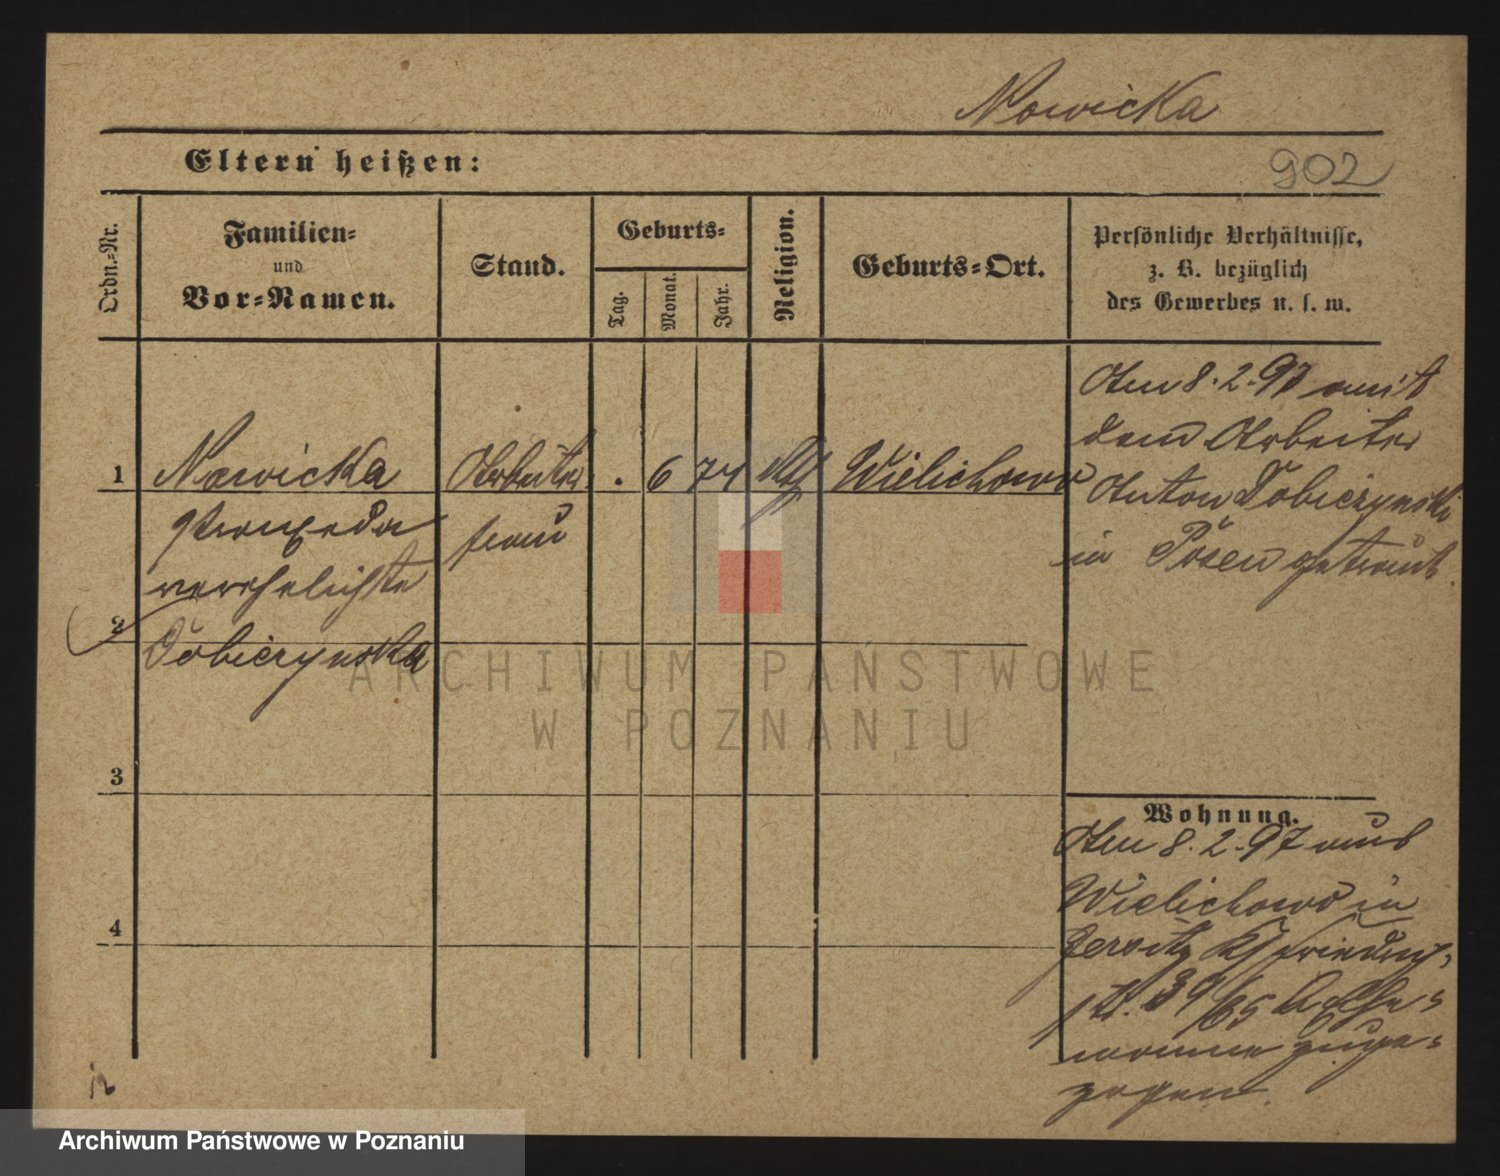 Nowicka
Eltern heißen:
902
Ordn.-Nr.
Familien-
und
Vor-Namen.
Stand.
Geburts-
Tag.
Monat.
Jahr.
Religion.
Geburts-Ort.
Persönliche Verhältnisse,
z. B. bezüglich
des Gewerbes u. s. w.
1
Nowicka
Praxeda
verehelichte
Dobieżynska
Arbeiter
frau
. 6 74
Wielichowo
Am 8.2.97 mit
dem Arbeiter
Anton Dobieżynski
in Posen getraut.
2
3
4
Wohnung.
Am 8.2.97 aus
Wielichowo in
Jersitz Kl Friedrich-
str. 39/65
zuge-
zogen.
ARCHIWUM PAŃSTWOWE
W POZNANIU
Archiwum Państwowe w Poznaniu